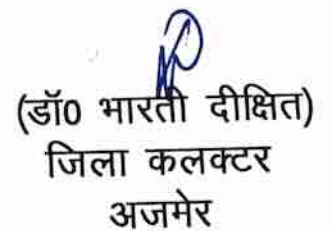 (डॉ0 भारती दीक्षित)
जिला कलक्टर
अजमेर